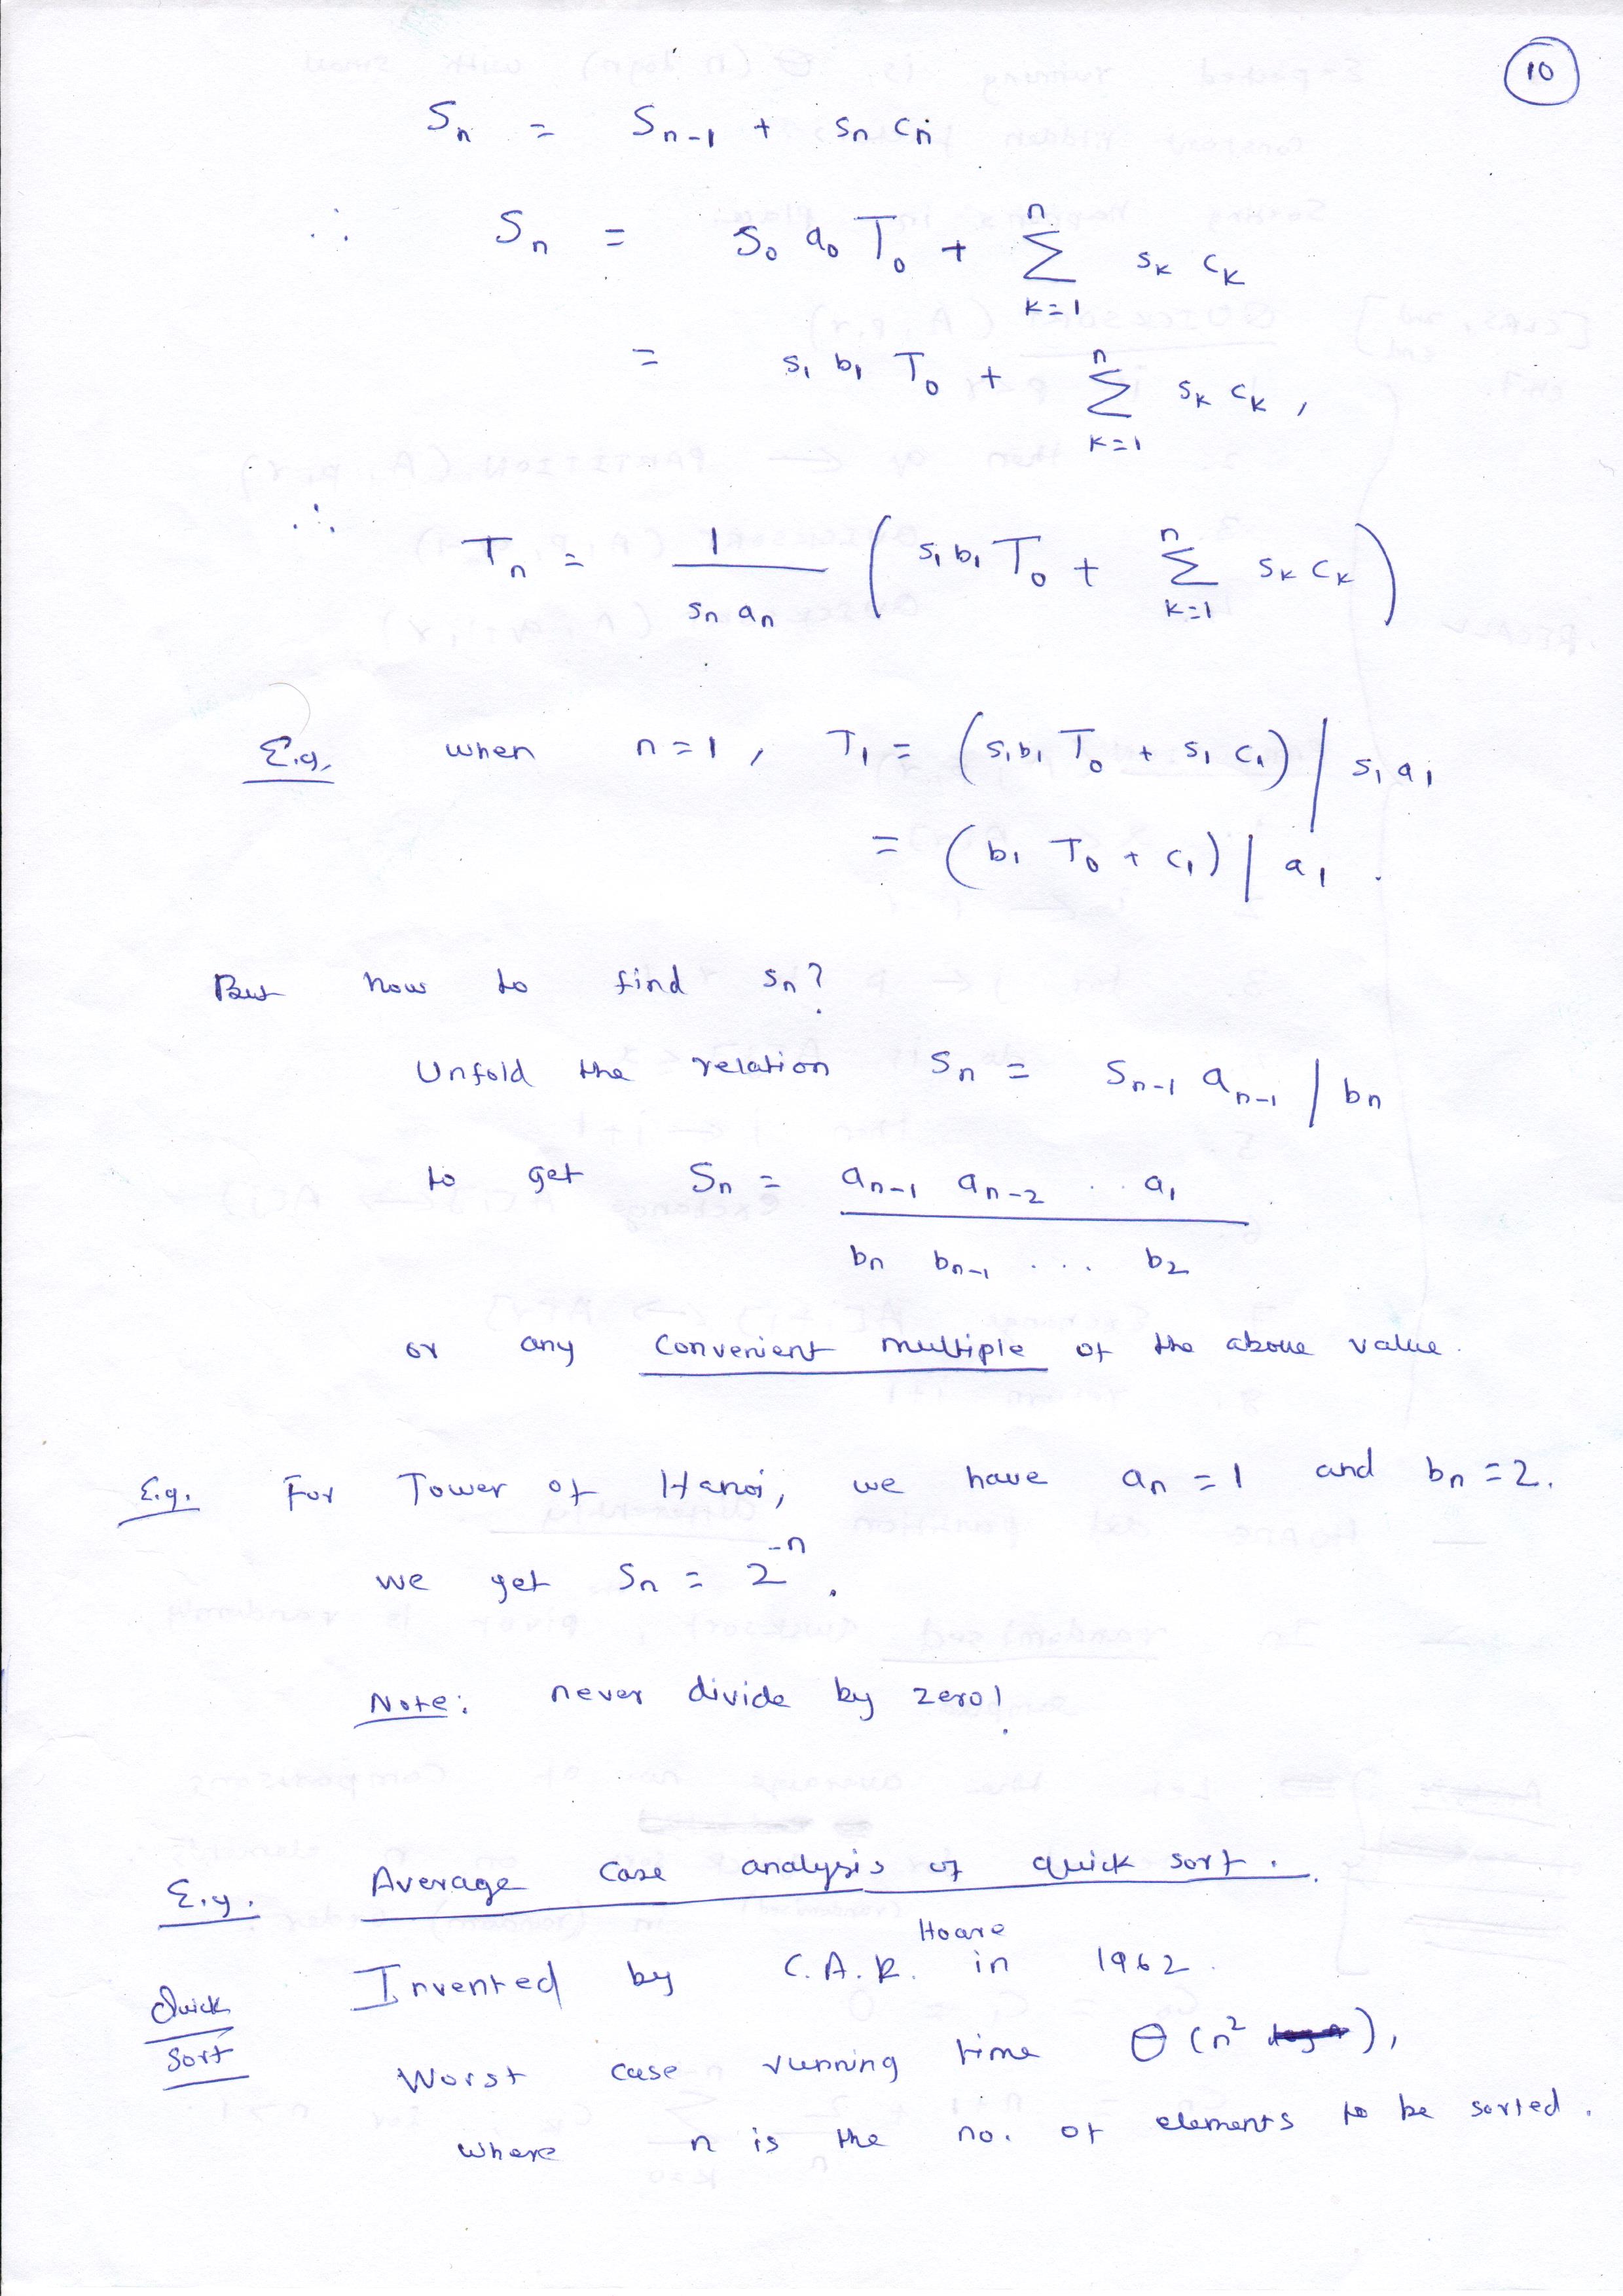 10
Sₙ = Sₙ₋₁ + sₙ cₙ
∴ Sₙ = s₀ a₀ T₀ + ∑ₖ₌₁ⁿ sₖ cₖ
= s₁ b₁ T₀ + ∑ₖ₌₁ⁿ sₖ cₖ ,
∴ Tₙ = 1 / (sₙ aₙ) ( s₁ b₁ T₀ + ∑ₖ₌₁ⁿ sₖ cₖ )
E.g. when n = 1 , T₁ = (s₁ b₁ T₀ + s₁ c₁) / s₁ a₁
= (b₁ T₀ + c₁) / a₁ .
But how to find sₙ ?
Unfold the relation sₙ = sₙ₋₁ aₙ₋₁ / bₙ
to get sₙ = aₙ₋₁ aₙ₋₂ . . a₁
bₙ bₙ₋₁ . . . b₂
or any convenient multiple of the above value.
E.g. For Tower of Hanoi, we have aₙ = 1 and bₙ = 2.
we get sₙ = 2⁻ⁿ .
Note: never divide by zero!
E.g. Average case analysis of quick sort .
Quick Sort
Invented by C.A.R. Hoare in 1962 .
Worst case running time Θ (n² ),
where n is the no. of elements to be sorted .